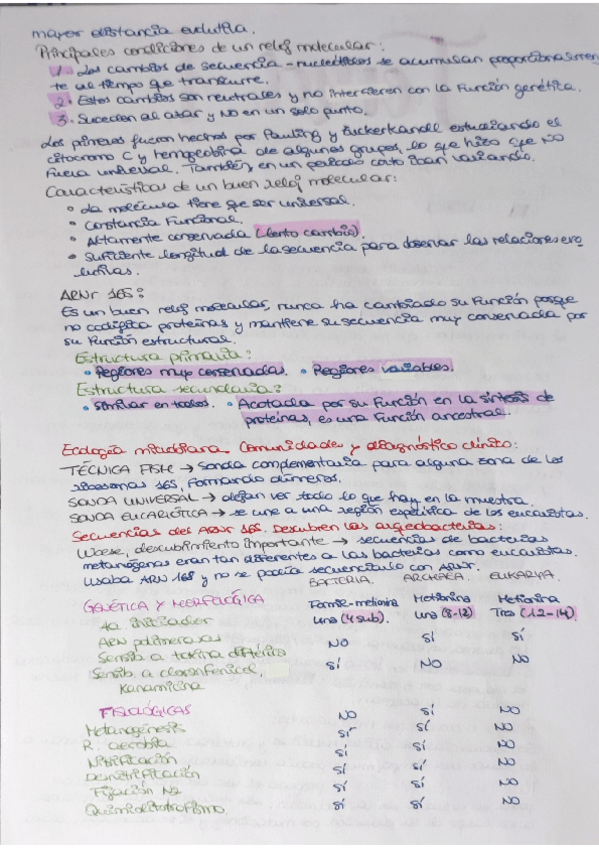 mayor distancia evolutiva.
Principales condiciones de un reloj molecular:
1. Los cambios de secuencia-nucleótidos se acumulan proporcionalmen
te al tiempo que transcurre.
2. Estos cambios son neutrales y no interfieren con la función genética.
3. Suceden al azar y NO en un solo punto.
Los primeros fueron hechos por Pauling y Zuckerkandl estudiando el
citocromo C y hemoglobina de algunos grupos, lo que hizo que NO
fuera universal. También, en un periodo corto iban variando.
Características de un buen reloj molecular:
• La molécula tiene que ser universal.
• Constancia Funcional.
• Altamente conservada (lento cambio).
• Suficiente longitud de la secuencia para observar las relaciones evo
lutivas.
ARNr 16S:
Es un buen reloj molecular, nunca ha cambiado su función porque
no codifica proteínas y mantiene su secuencia muy conservada por
su función estructural.
Estructura primaria:
• Regiones muy conservadas. • Regiones variables.
Estructura secundaria:
• Similar en todos. • Acotada por su función en la síntesis de
proteínas, es una función ancestral.
Ecología microbiana. Comunidades y diagnóstico clínico:
TÉCNICA FISH → Sonda complementaria para alguna zona de los
ribosomas 16S, formando dímeros.
SONDA UNIVERSAL → dejan ver todo lo que hay en la muestra.
SONDA EUCARIÓTICA → se une a una región específica de los eucariotas.
Secuencias del ARNr 16S. Descubren las arqueobacterias:
Woese, descubrimiento importante → secuencias de bacterias
metanógenas eran tan diferentes a las bacterias como eucariotas.
Usaba ARN 16S y no se podía secuenciarlo con ARNr.
BACTERIA. ARCHAEA. EUKARYA.
GENÉTICA Y MORFOLÓGICA Formil-metionina Metionina Metionina
Aa iniciador Una (4 sub). una (8-12) Tres (12-14).
ARN polimerasas
Sensib a toxina diftérica NO SÍ SÍ
Sensib a cloranfenicol, SÍ NO NO
Kanamicina
FISIOLÓGICAS
Metanogénesis NO SÍ NO
R. aerobia SÍ SÍ NO
Nitrificación SÍ SÍ NO
Desnitrificación SÍ SÍ NO
Fijación N2 SÍ SÍ NO
Quimiolitotrofismo SÍ SÍ NO